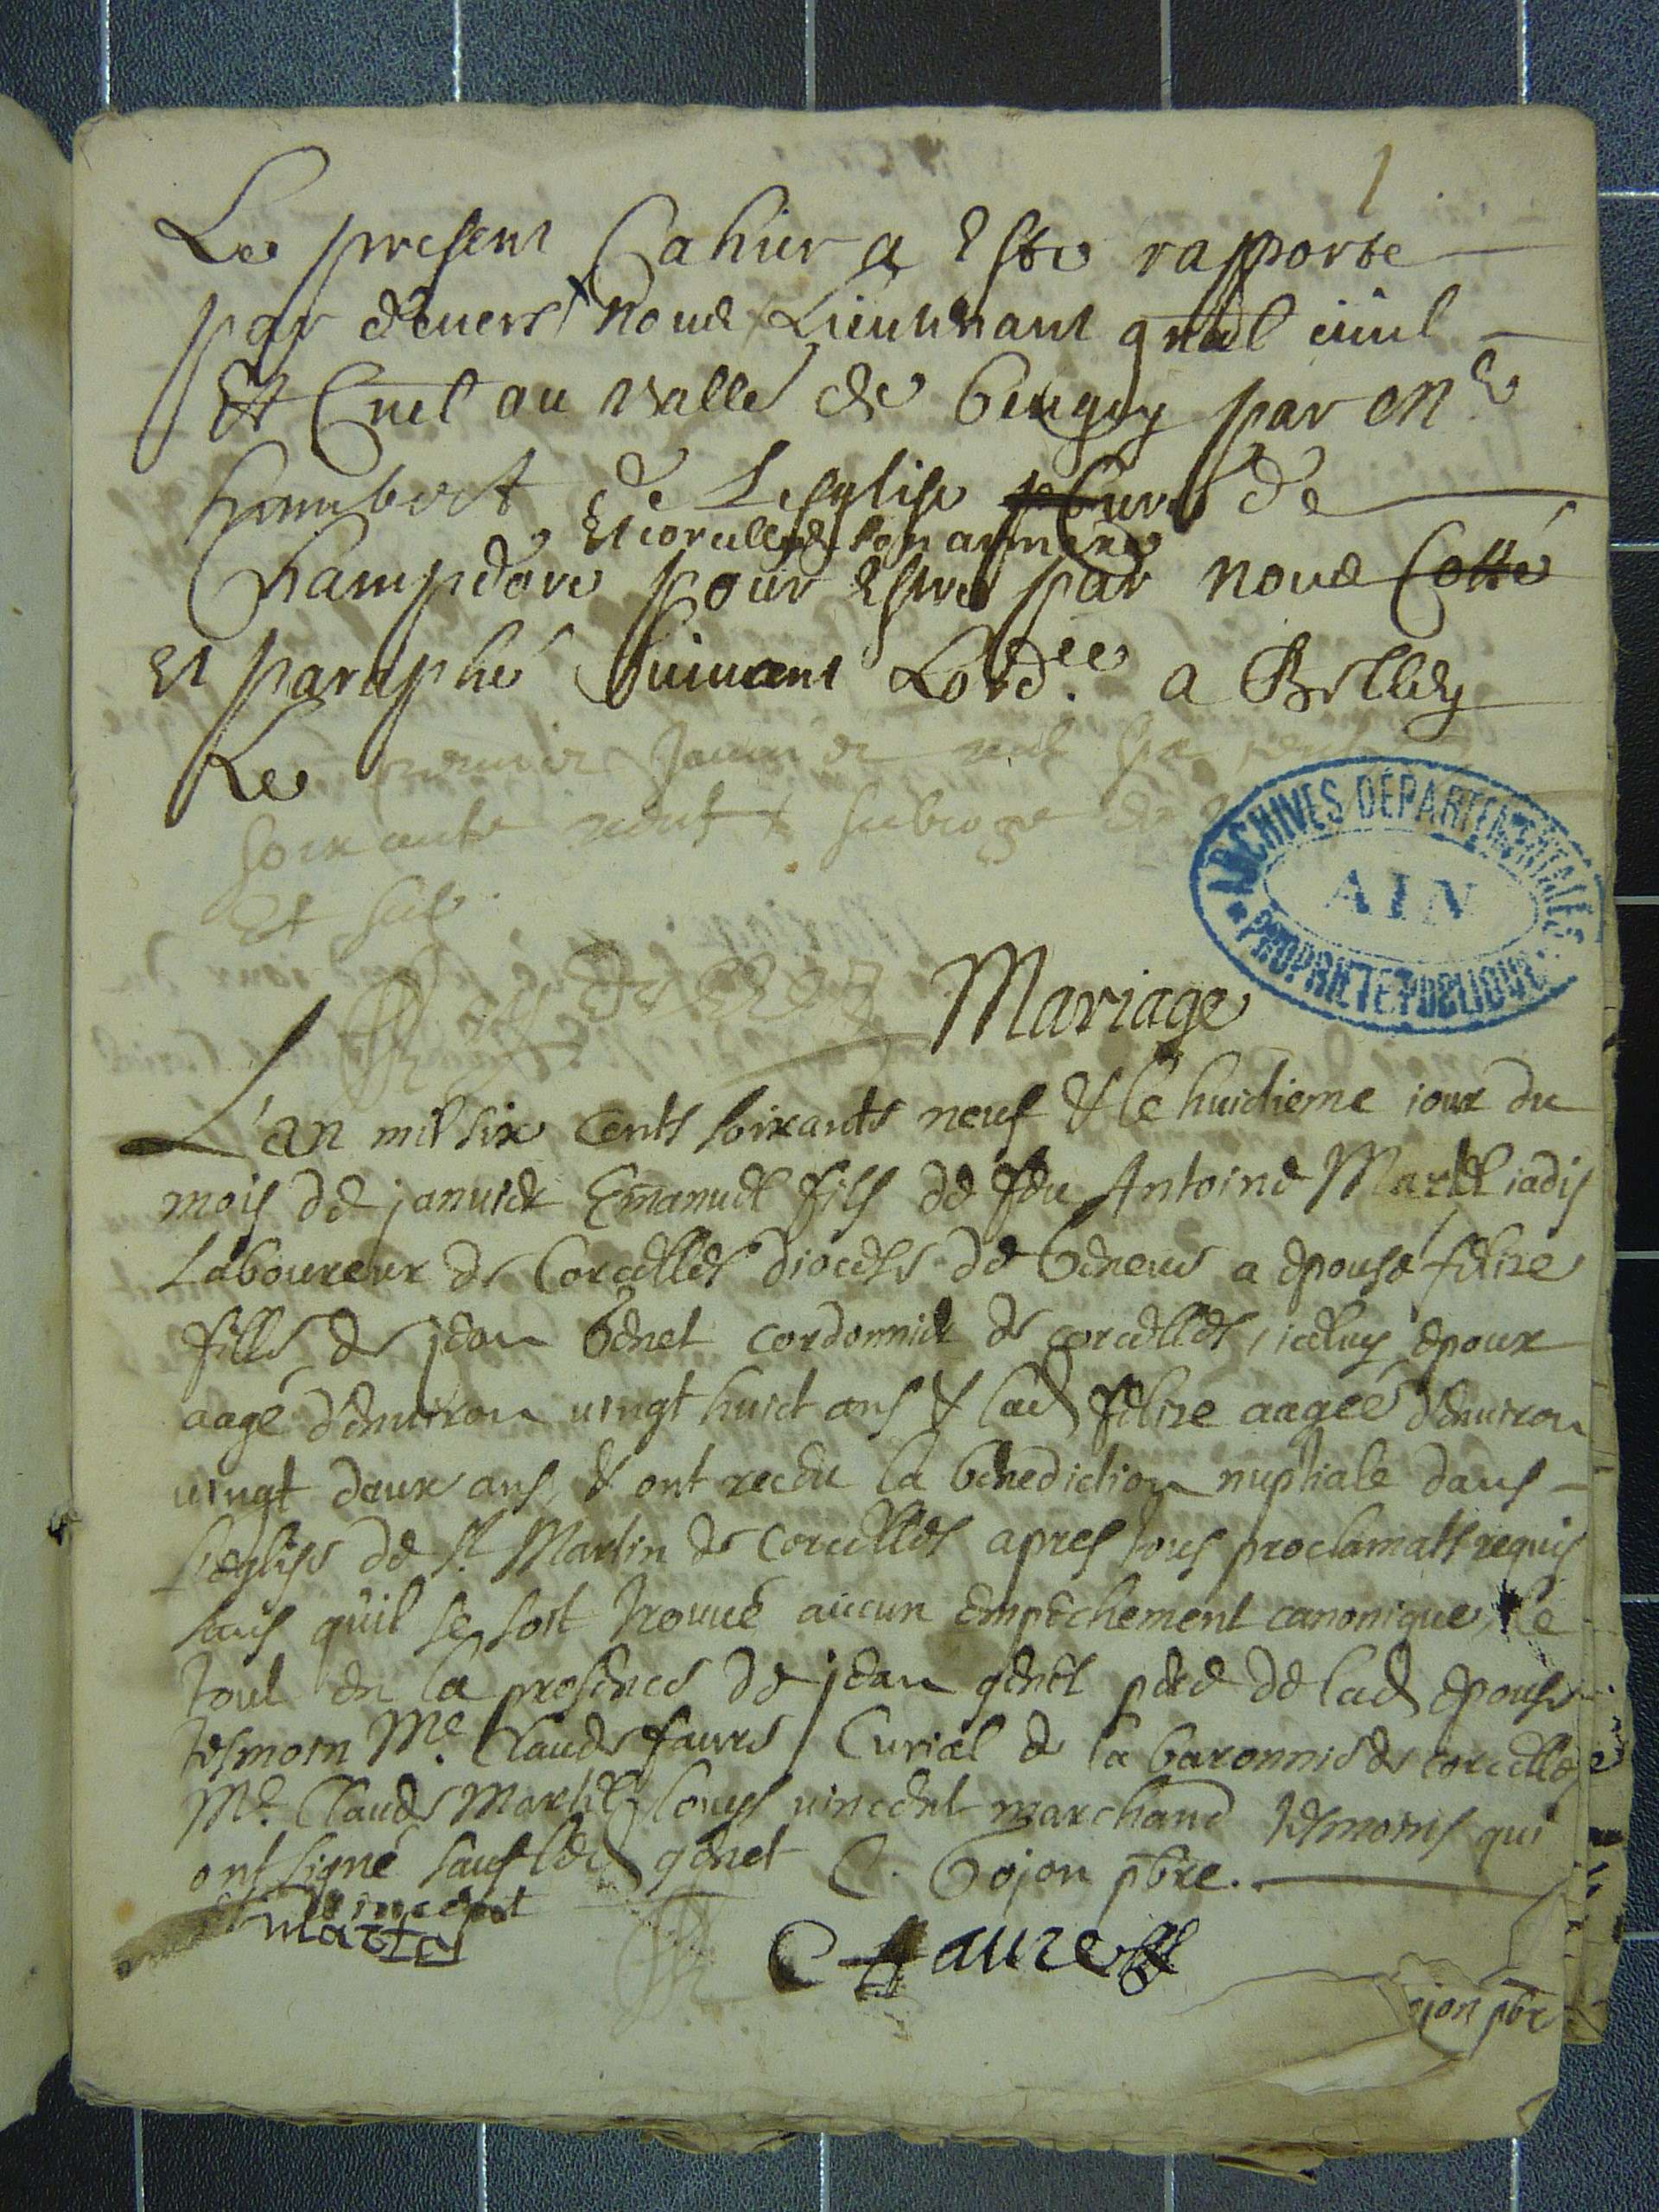 1
Le present Cahier a Este rapporté
par devers nous Lieutenant gnâl ciuil
Et Cruel au Valle de beugey par Me
humbert de Leglise Curé de
Et corcelles son annexe
Champdore pour Estre par nous Cotté
Et paraphé Suiuant Lordce a Belley
Le premier Januier mil six cent
soixante neuf subroge
Et sub
Mariage
L'an mil six cents soixante neuf & le huictieme iour du
mois de januier Emanuel fils de feu Antoine Martel iadis
Laboureur de Corcelles diocese de Geneue a epousé felize
fille de jean Genet cordonnier de corcelles, iceluy epoux
aagé d'enuiron uingt huict ans & lad felize aagée d'enuiron
uingt deux ans, & ont receu la benediction nuptiale dans
l'eglise de st Martin de Corcelles apres tous proclamats requis
sans qu'il se soit trouué aucun empechement canonique, le
tout en la presence de jean genet pere de lad epouse
tesmoin Me Claude faure Curial de la baronnie de corcelles
Me Claude Martel, Louys uincent marchand tesmoins qui
ont signé sauf led genet C. Gojon pbre.
Vincent
Martel
C faure
ojon pbre
ARCHIVES DEPARTEMENTALES
AIN
PROPRIETE PUBLIQUE